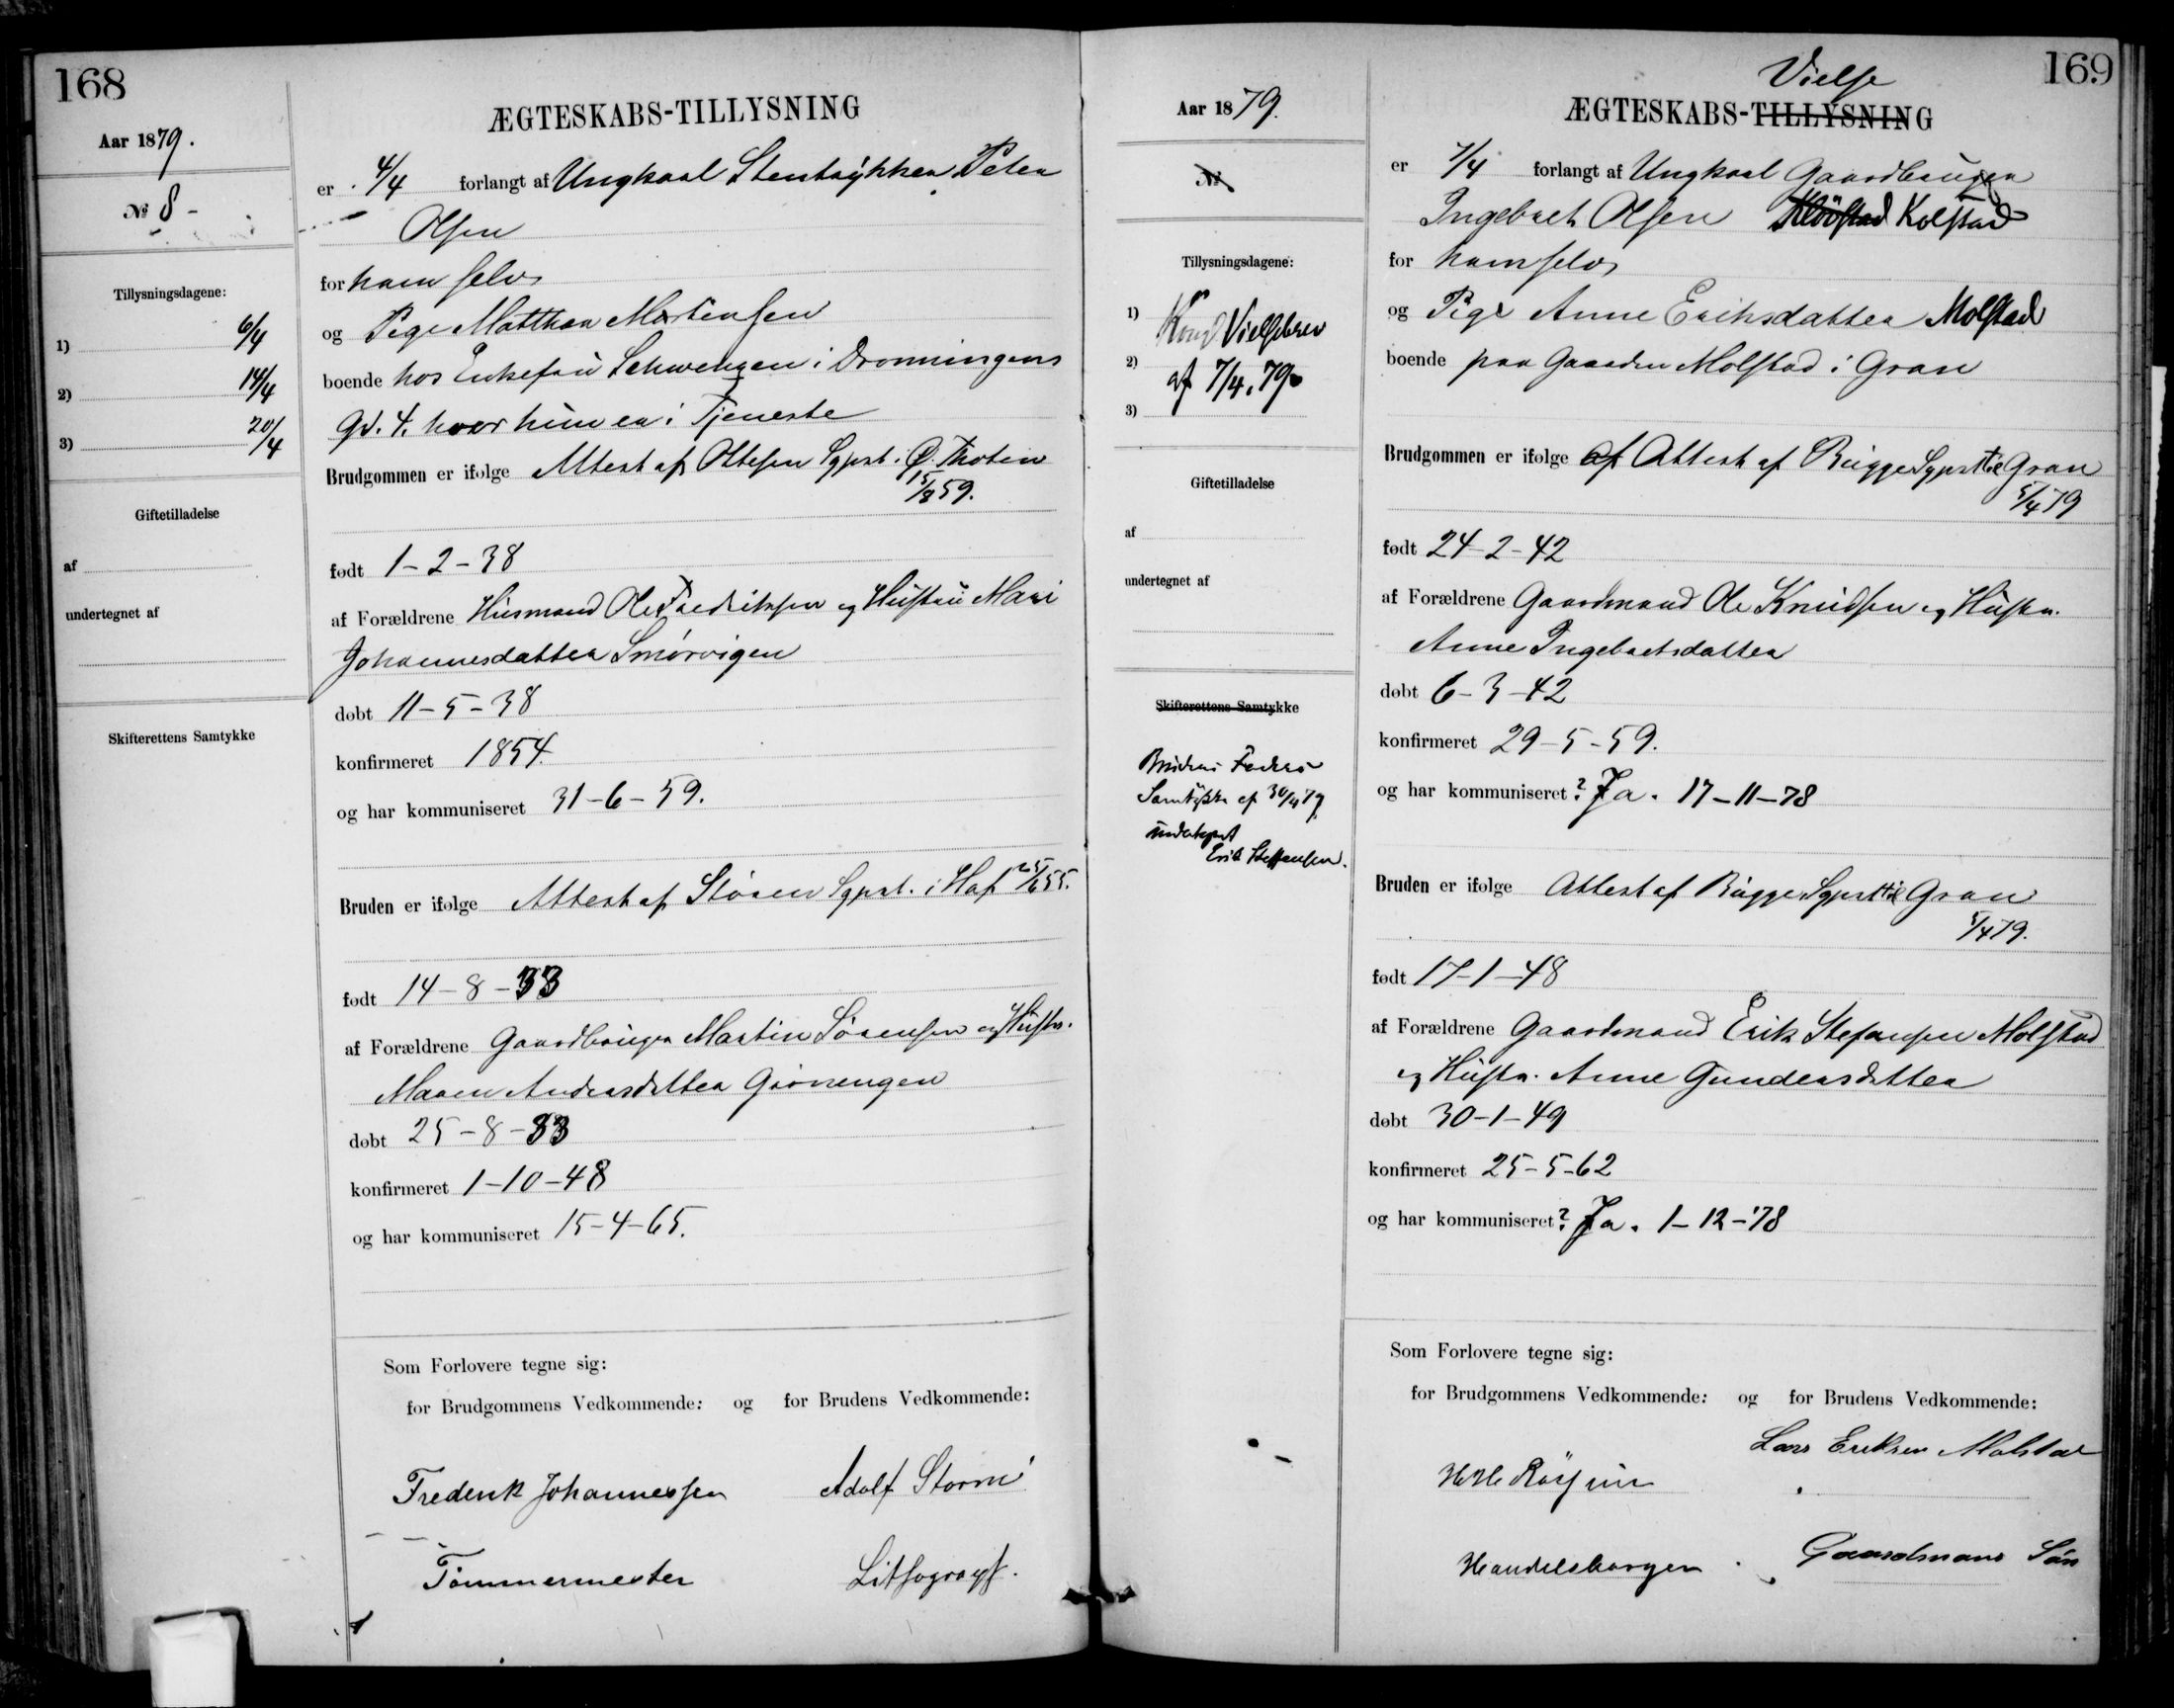 168
Aar 1879.
№ 8 -
Tillysningsdagene:
1) 6/4
2) 14/4
3) 20/4
Giftetilladelse
af
undertegnet af
Skifterettens Samtykke
ÆGTESKABS-TILLYSNING
er 4/4 forlangt af Ungkarl Stentrykker Peter
Olsen
for ham selv
og Pige Matthea Martinsen
boende hos Enkefru Schwenzen i Dronningens
Gd. 4. hvor hun er i Tjeneste
Brudgommen er ifølge Attest af Ottesen Sgpst. i Ø. Thoten
15/8 59.
født 1-2-38
af Forældrene Husmand Ole Fredriksen og Hustru Mari
Johannesdatter Smørvigen
døbt 11-5-38
konfirmeret 1854.
og har kommuniseret 31-6-59.
Bruden er ifølge Attest af Støren Sgpst. i Hof 25/6 55.
født 14-8-33
af Forældrene Gaardbruger Martin Sørensen og Hustr.
Maren Andersdatter Grønengen
døbt 25-8-33
konfirmeret 1-10-48
og har kommuniseret 15-4-65.
Som Forlovere tegne sig:
for Brudgommens Vedkommende: og for Brudens Vedkommende:
Frederik Johannessen Adolf Storm
Tømmermester Lithograph.
169
Aar 1879.
№
Tillysningsdagene:
1) Kongl Vielsebrev
2) af 7/4. 79.
3)
Giftetilladelse
af
undertegnet af
Skifterettens Samtykke
Brudens Faders
Samtykke af 30/4 79
undertegnet
Erik Steffensen.
Vielse
ÆGTESKABS-TILLYSNING
er 7/4 forlangt af Ungkarl Gaardbruger
Ingebret Olsen Kolstad
for ham selv
og Pige Anne Eriksdatter Molstad
boende paa Gaarden Molstad i Gran
Brudgommen er ifølge af Attest af Bugge Sgpst til Gran
5/4 79
født 24-2-42
af Forældrene Gaardmand Ole Knudsen og Hustr.
Anne Ingebretsdatter
døbt 6-3-42
konfirmeret 29-5-59.
og har kommuniseret? Ja. 17-11-78
Bruden er ifølge Attest af Bugge Sgpst til Gran
5/4 79.
født 17-1-48
af Forældrene Gaardmand Erik Stefansen Molstad
og Hustr. Anne Gundersdatter
døbt 30-1-49
konfirmeret 25-5-62
og har kommuniseret? Ja. 1-12-78
Som Forlovere tegne sig:
for Brudgommens Vedkommende: og for Brudens Vedkommende:
Lars Eriksen Molstad
Handelsborger Gaardmans Søn